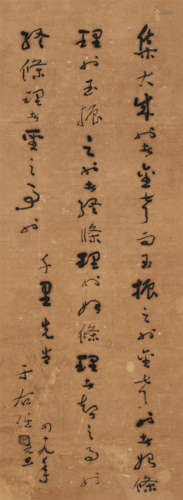 集大成也者金聲而玉振之也金聲也者始條
理也玉振之也者終條理也始條理者智之事也
終條理者聖之事也
千里先生
于右任